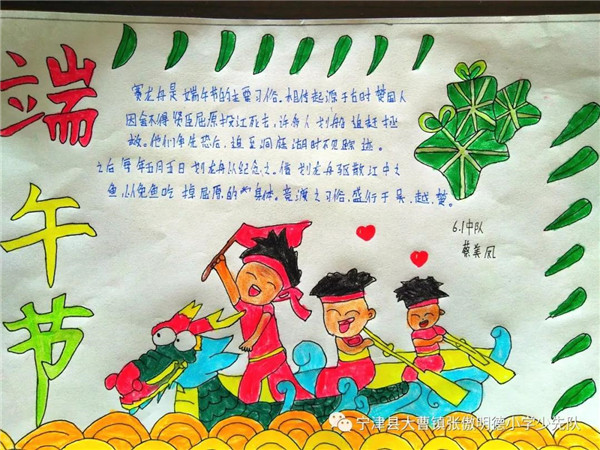 端午节
赛龙舟是端午节的主要习俗。相传起源于古时楚国人
因舍不得贤臣屈原投江死去,许多人划船追赶拯
救。他们争先恐后,追至洞庭湖时不见踪迹。
之后每年五月五日划龙舟以纪念之。借划龙舟驱散江中之
鱼,以免鱼吃掉屈原的身体。竞渡之习俗,盛行于吴、越、楚。
6.1中队
蔡美凤
宁津县大曹镇张傲明德小学少先队